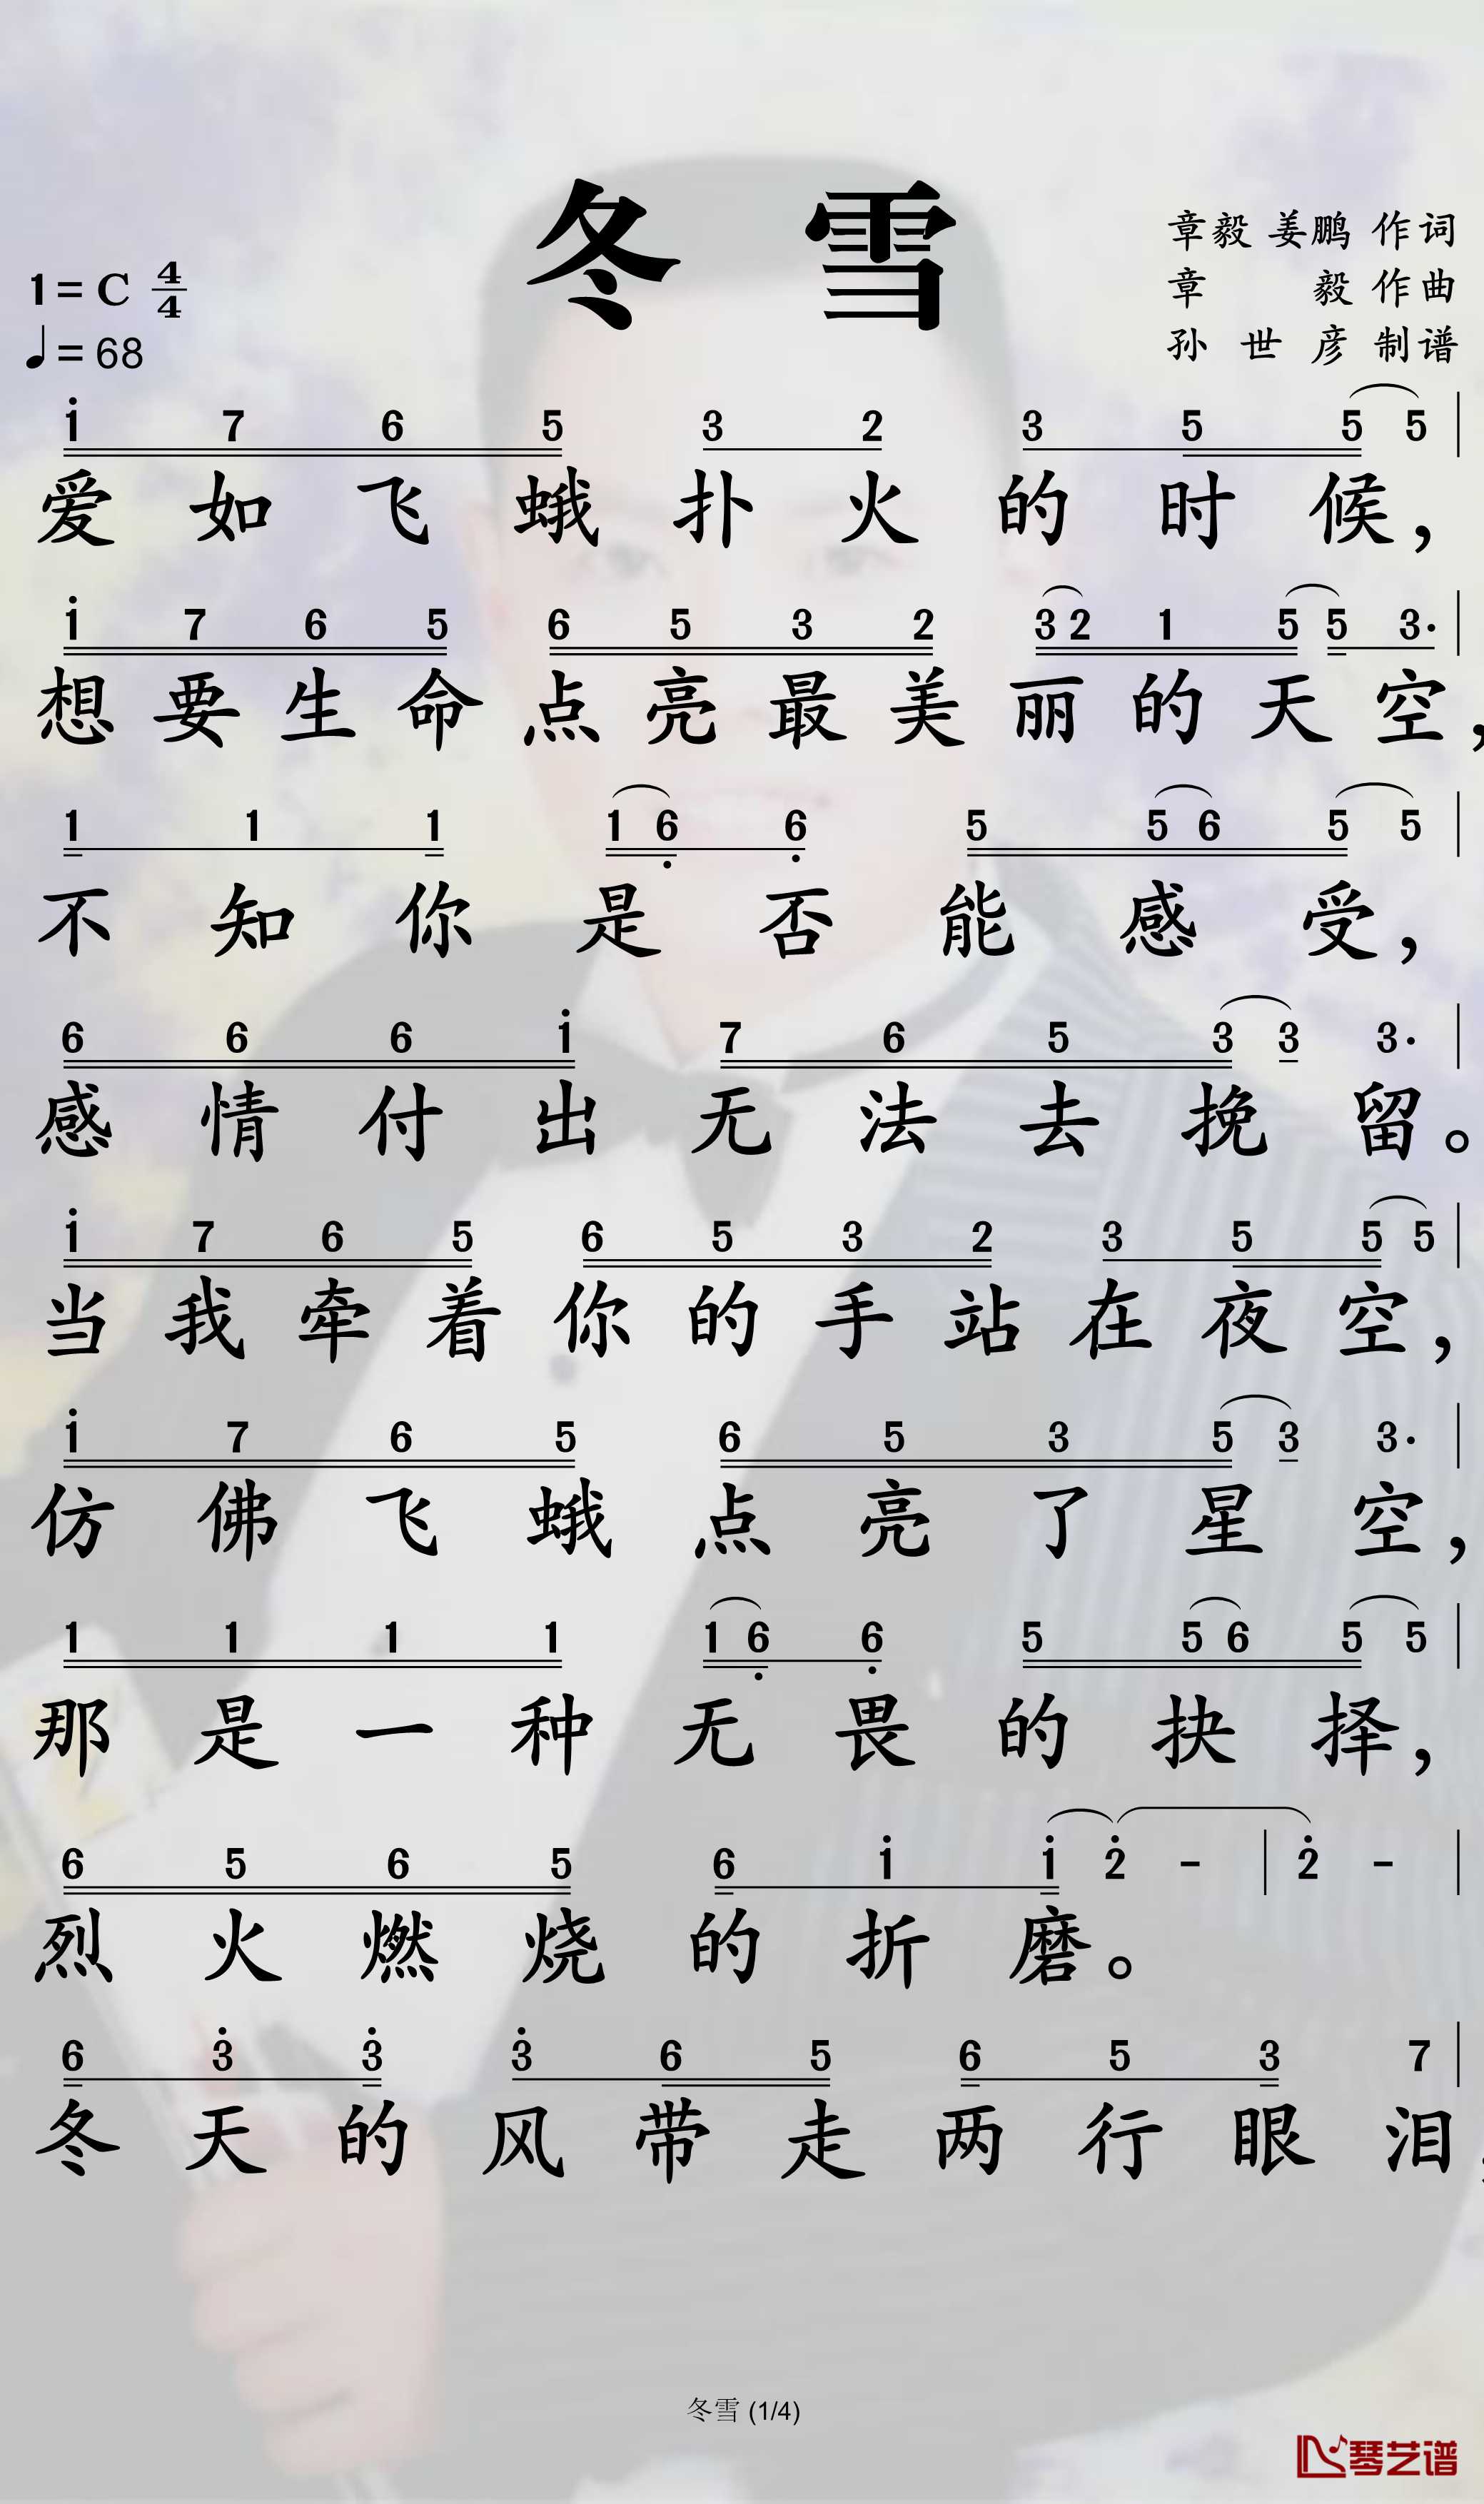 冬 雪
章毅 姜鹏 作词
章 毅 作曲
孙 世 彦 制谱
1=C 4/4
♩=68
i 7 6 5 3 2 3 5 5 5 |
爱 如 飞 蛾 扑 火 的 时 候，
i 7 6 5 6 5 3 2 3 2 1 5 5 3· |
想 要 生 命 点 亮 最 美 丽 的 天 空，
1 1 1 1 6̣ 6̣ 5 5 6 5 5 |
不 知 你 是 否 能 感 受，
6 6 6 i 7 6 5 3 3 3· |
感 情 付 出 无 法 去 挽 留。
i 7 6 5 6 5 3 2 3 5 5 5 |
当 我 牵 着 你 的 手 站 在 夜 空，
i 7 6 5 6 5 3 5 3 3· |
仿 佛 飞 蛾 点 亮 了 星 空，
1 1 1 1 1 6̣ 6̣ 5 5 6 5 5 |
那 是 一 种 无 畏 的 抉 择，
6 5 6 5 6 i i 2̇ - | 2̇ - |
烈 火 燃 烧 的 折 磨。
6 3̇ 3̇ 3̇ 6 5 6 5 3 7 |
冬 天 的 风 带 走 两 行 眼 泪
冬雪 (1/4)
琴艺谱